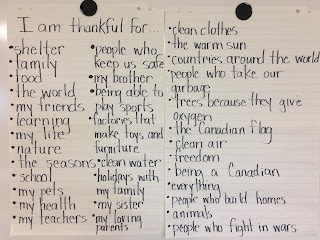 I am thankful for...
• shelter
• family
• food
• the world
• my friends
• learning
• my life
• nature
• the seasons
• school
• my pets
• my health
• my teachers
• people who
keep us safe
• my brother
• being able to
play sports
• factories that
make toys and
furniture
• clean water
• holidays with
my family
• my sister
• my loving
parents
• clean clothes
• the warm sun
• countries around the world
• people who take our
garbage
• trees because they give
oxygen
• the Canadian flag
• clean air
• freedom
• being a Canadian
• everything
• people who build homes
• animals
• people who fight in wars